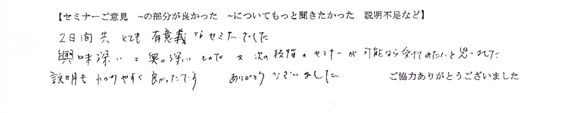 【セミナーご意見　~の部分が良かった　~についてもっと聞きたかった　説明不足など】
2日間共 とても 有意義なセミナーでした
興味深い 奥の深い 次の段階のセミナーが可能なら受けてみたいと思いました
説明も わかりやすく 良かったです　ありがとうございました　ご協力ありがとうございました